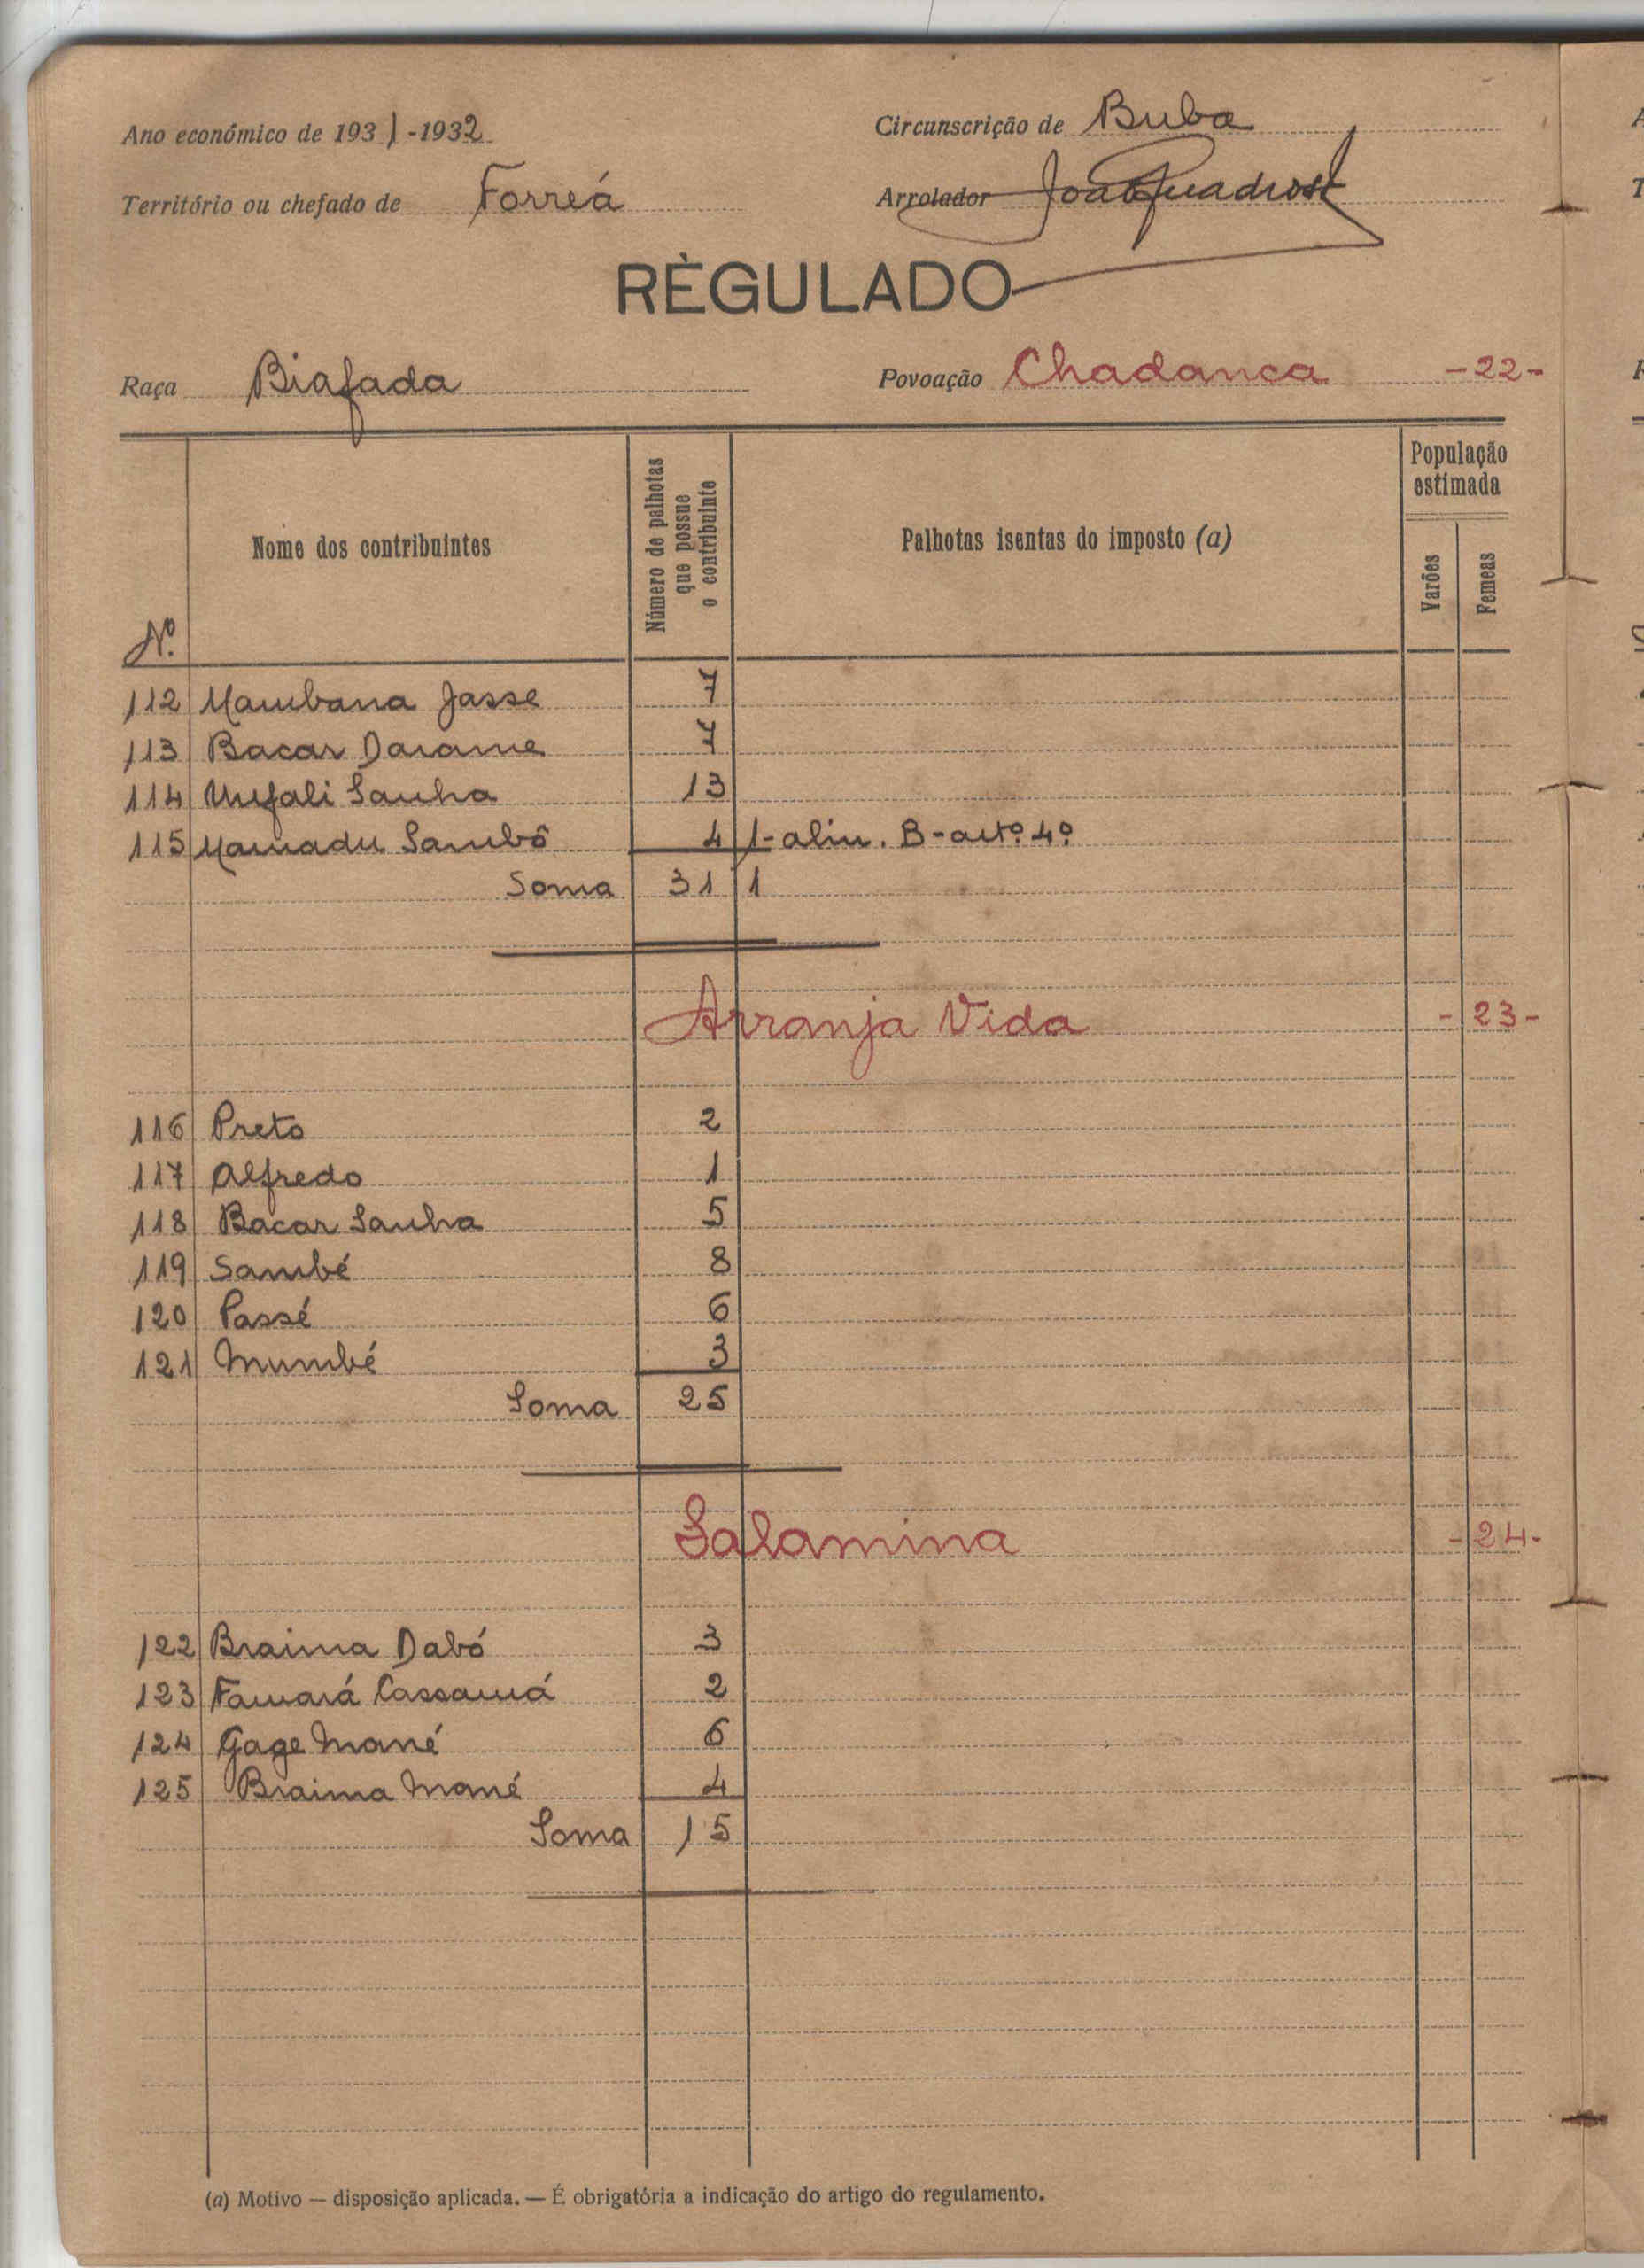 Ano económico de 1931-1932
Circunscrição de Buba
Território ou chefado de Forreá
Arrolador
RÈGULADO
Raça Biafada
Povoação Chadanca -22-
Nº
Nome dos contribuintes
Número de palhotas que possue o contribuinte
Palhotas isentas do imposto (a)
População estimada
Varões
Femeas
112 Mambana Jasse 7
113 Bacar Darame 7
114 Unfali Sanha 13
115 Mamadu Sambô 4 1-alin. B-artº. 4º
Soma 31 1
Arranja Vida -23-
116 Preto 2
117 Alfredo 1
118 Bacar Sanha 5
119 Sambé 8
120 Passé 6
121 Mumbé 3
Soma 25
Salamina -24-
122 Braima Dabó 3
123 Famará Cassamá 2
124 Gage Mané 6
125 Braima Mané 4
Soma 15
(a) Motivo — disposição aplicada. — É obrigatória a indicação do artigo do regulamento.